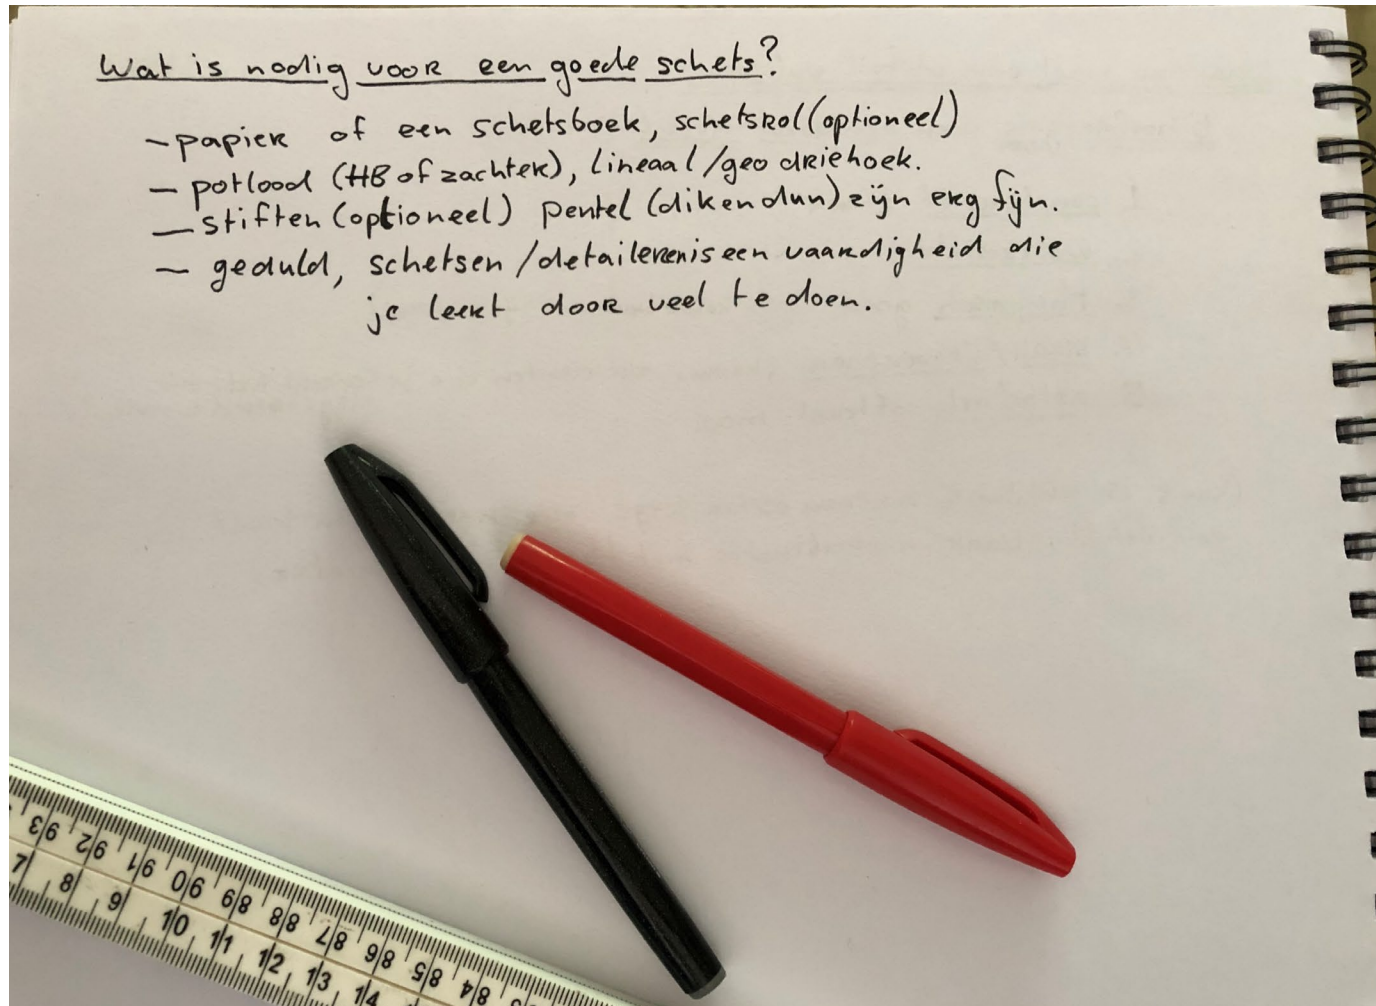 Wat is nodig voor een goede schets?
- papier of een schetsboek, schetsrol (optioneel)
- potlood (HB of zachter), lineaal/geo driehoek.
- stiften (optioneel) pentel (dik en dun) zijn erg fijn.
- geduld, schetsen/detaileren is een vaardigheid die
je leert door veel te doen.
93 92 91 90 89 88 87 86 85 84
7 8 9 10 11 12 13 14